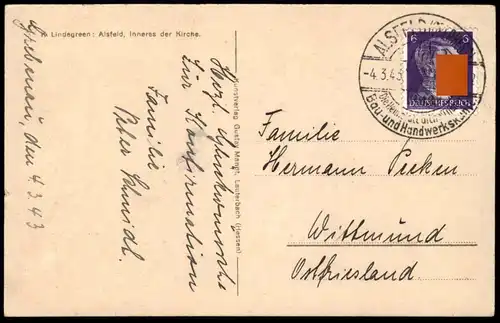 Lindegreen: Alsfeld, Inneres der Kirche.
den 4.3.43
Herzl. Glückwünsche
zur Konfirmation
Familie
Peter Schmidt.
Kunstverlag Gustav Mandt, Lauterbach (Hessen)
ALSFELD
-4.3.43
6
DEUTSCHES REICH
Bau- und Handwerks
Familie
Hermann Peeken
Wittmund
Ostfriesland